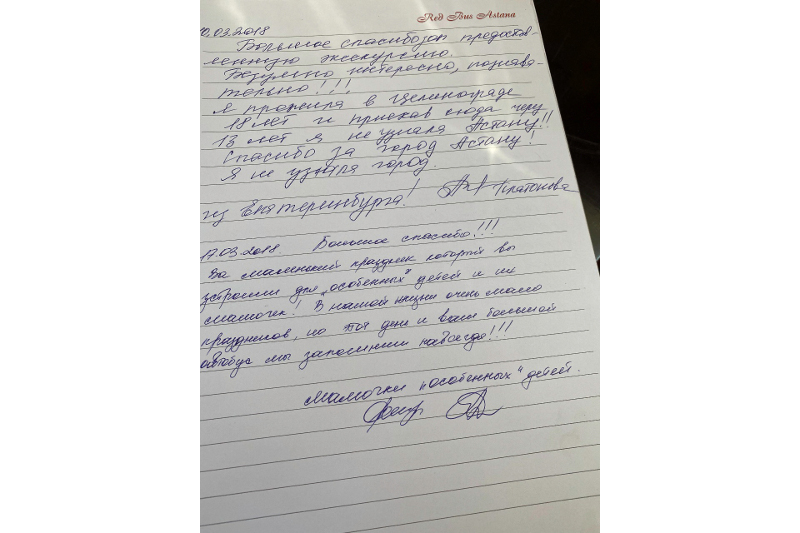 Red Bus Astana
10.03.2018
Большое спасибо за предостав-
ленную экскурсию.
Безумно интересно, познава-
тельно!!!
Я прожила в Целинограде
18 лет и приехав сюда через
13 лет я не узнала Астану!!
Спасибо за город Астану!
Я не узнала город.
из Екатеринбурга! Платонова
17.03.2018. Большое спасибо!!!
За маленький праздник который вы
устроили для "особенных" детей и их
мамочек! В нашей жизни очень мало
праздников, но тот день и ваш большой
автобус мы запомним навсегда!!!
Мамочки "особенных" детей.